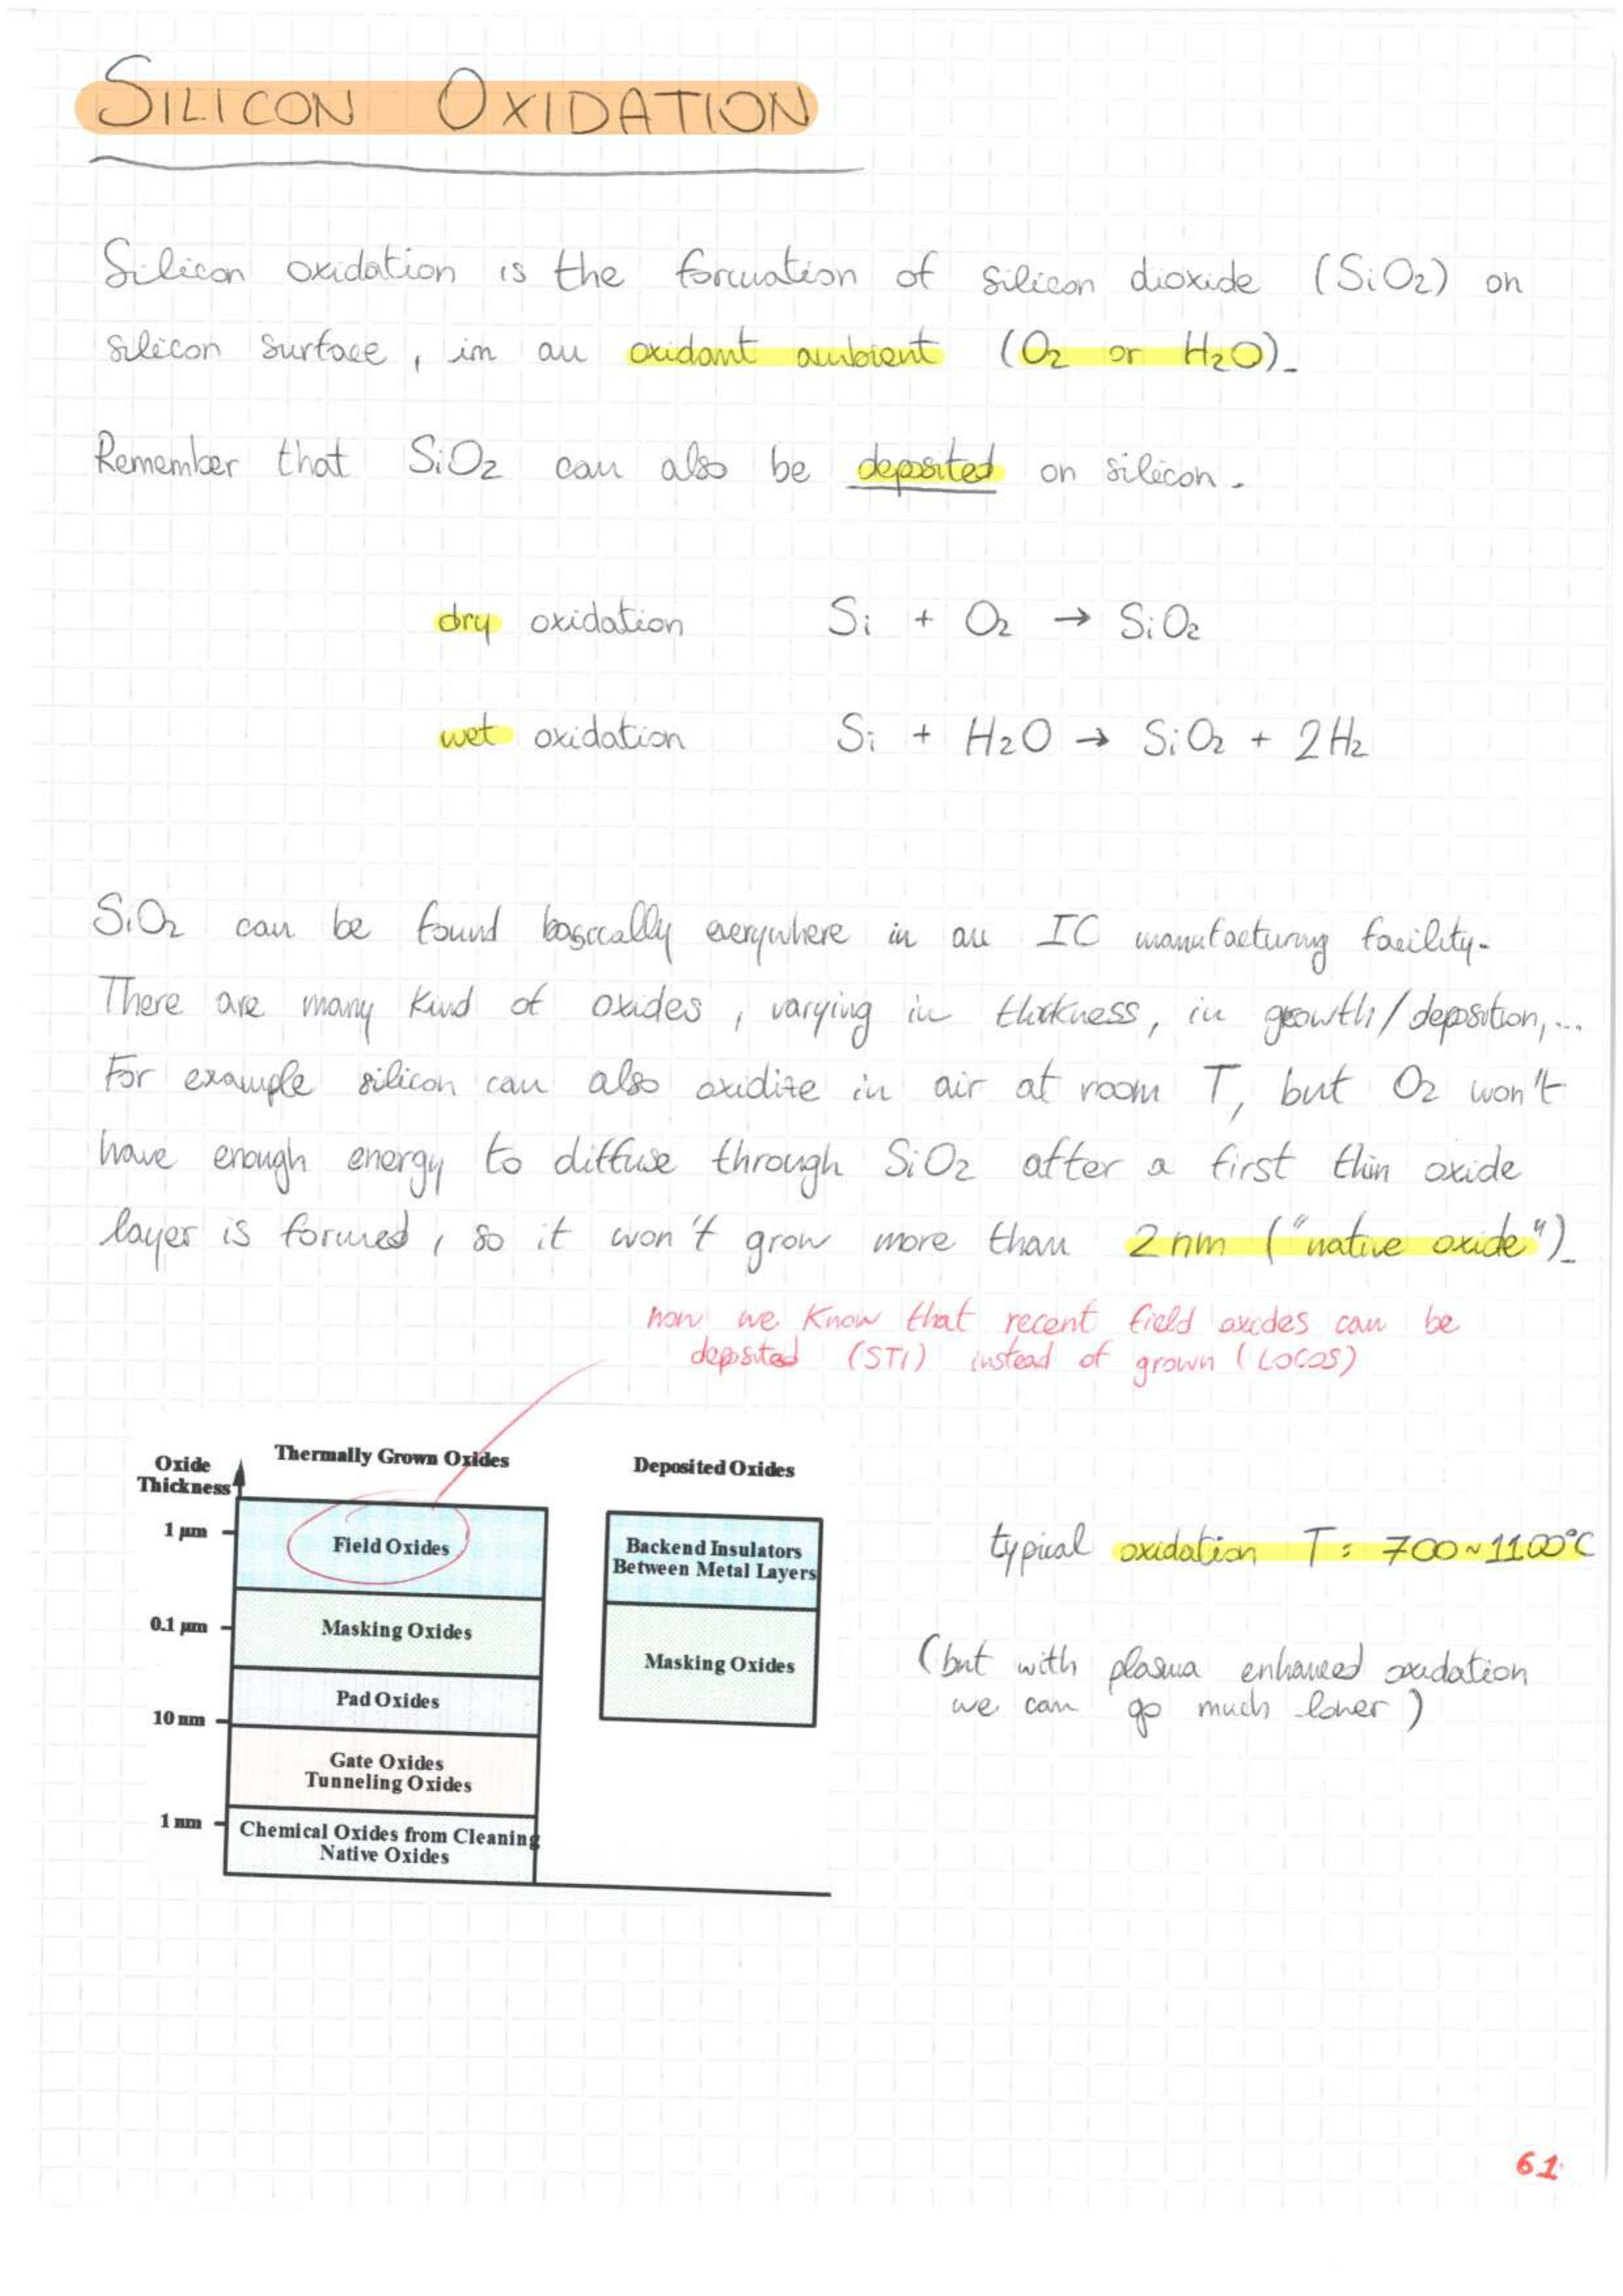 SILICON OXIDATION
Silicon oxidation is the formation of silicon dioxide (SiO2) on
silicon surface, in an oxidant ambient (O2 or H2O).
Remember that SiO2 can also be deposited on silicon.
dry oxidation Si + O2 → SiO2
wet oxidation Si + H2O → SiO2 + 2H2
SiO2 can be found basically everywhere in an IC manufacturing facility.
There are many kind of oxides, varying in thickness, in growth/deposition,...
For example silicon can also oxidize in air at room T, but O2 won't
have enough energy to diffuse through SiO2 after a first thin oxide
layer is formed, so it won't grow more than 2 nm ("native oxide").
now we know that recent field oxides can be
deposited (STI) instead of grown (LOCOS)
Oxide
Thickness
Thermally Grown Oxides
Deposited Oxides
1 µm
Field Oxides
0.1 µm
Masking Oxides
Pad Oxides
10 nm
Gate Oxides
Tunneling Oxides
1 nm
Chemical Oxides from Cleaning
Native Oxides
Backend Insulators
Between Metal Layers
Masking Oxides
typical oxidation T: 700~1100°C
(but with plasma enhanced oxidation
we can go much lower)
61